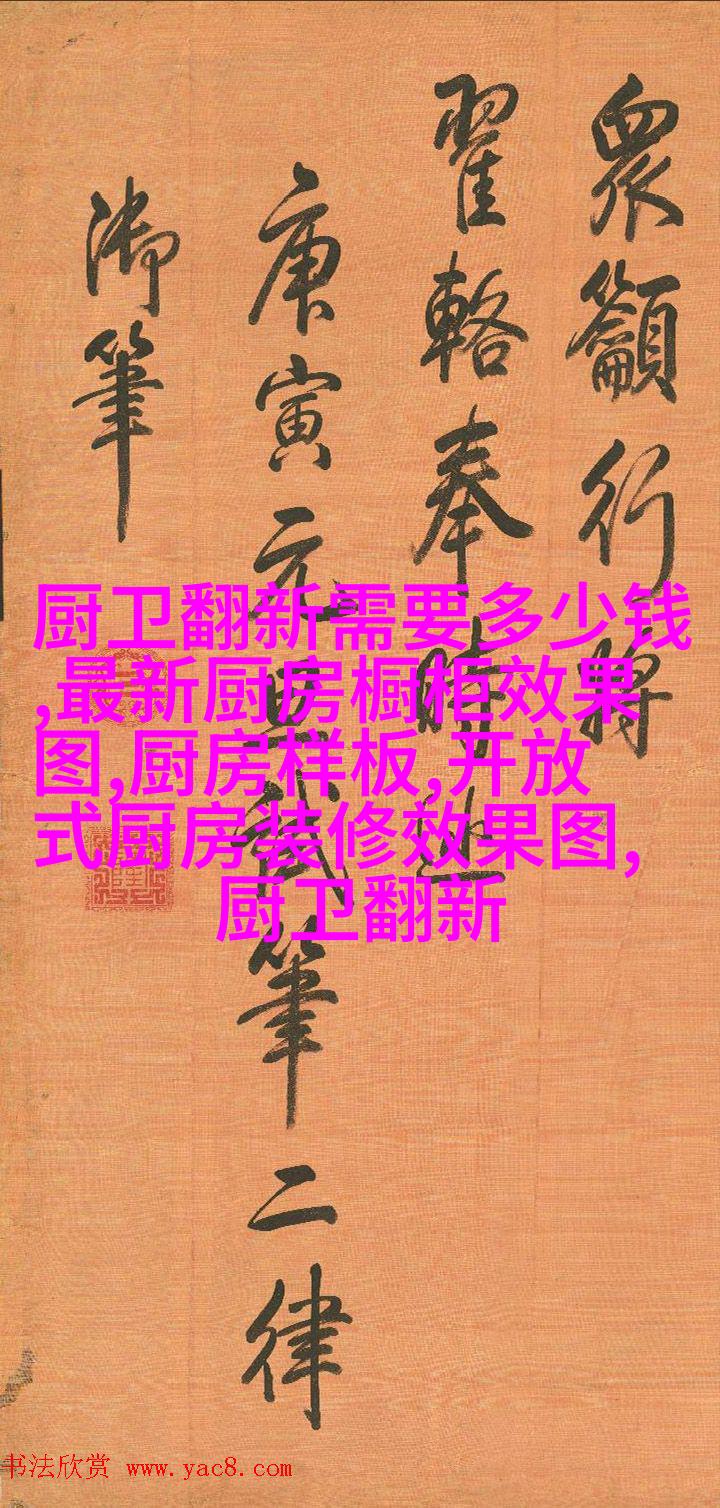 衆籲行將
翟輅奉時巡
庚寅元旦試筆二律
御筆
厨卫翻新需要多少钱
,最新厨房橱柜效果
图,厨房样板,开放
式厨房装修效果图,
厨卫翻新
书法欣赏 www.yac8.com